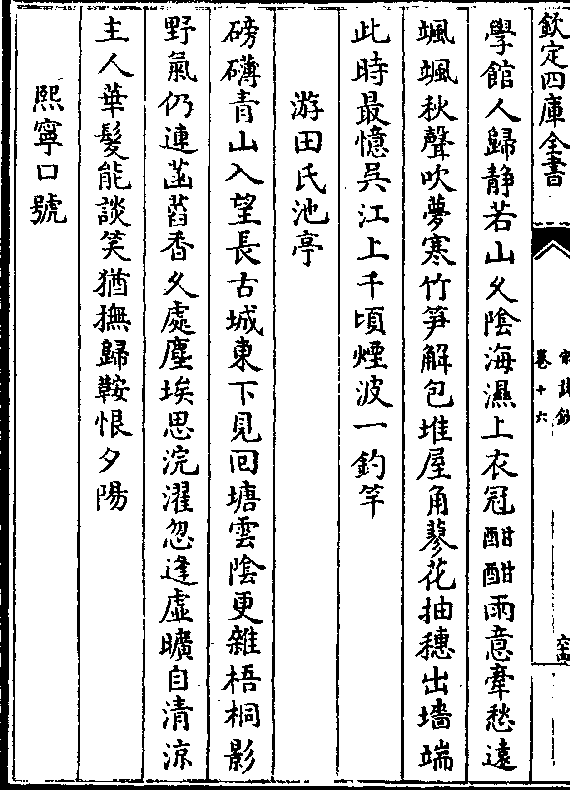 欽定四庫全書
卷十六
學館人歸靜若山久陰海濕上衣冠酣酣雨意牽愁遠
颯颯秋聲吹夢寒竹笋解包堆屋角蓼花抽穗出墻端
此時最憶吳江上千頃煙波一釣竿
游田氏池亭
磅礴青山入望長古城東下見囘塘雲陰更雜梧桐影
野氣仍連菡萏香久處塵埃思浣濯忽逢虛曠自清涼
主人華髮能談笑猶撫歸鞍恨夕陽
熙寧口號